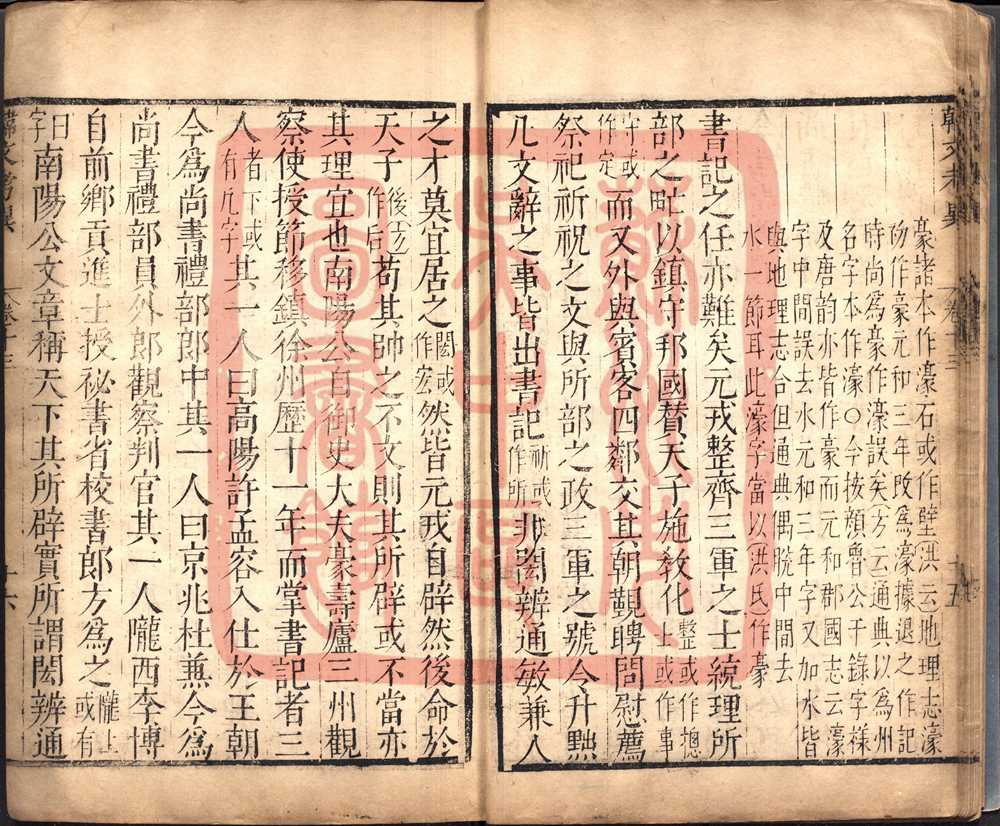 韓文考異 卷十三 十五
豪諸本作濠石或作壁洪云地理志濠
初作豪元和三年改爲濠據退之作記
時尚爲豪作濠誤矣方云通典以爲州
名字本作濠○今按顏魯公干錄字樣
及唐韵亦皆作豪而元和郡國志云濠
字中間誤去水元和三年字又加水皆
與地理志合但通典偶脫中間去
水一節耳此濠字當以洪氏作豪
書記之任亦難矣元戎整齊三軍之士統理所
部之甿以鎮守邦國贊天子施教化整或作揔士或作事
守或作定而又外與賓客四鄰交其朝覲聘問慰薦
祭祀祈祝之文與所部之政三軍之號令升黜
凡文辭之事皆出書記祈或作所非閎辨通敏兼人
之才莫宜居之閎或作宏然皆元戎自辟然後命於
天子後方作后苟其帥之不文則其所辟或不當亦
其理宜也南陽公自御史大夫豪壽廬三州觀
察使授節移鎮徐州歷十一年而掌書記者三
人者下或有凡字其一人曰高陽許孟容入仕於王朝
今爲尚書禮部郎中其一人曰京兆杜兼今爲
尚書禮部員外郎觀察判官其一人隴西李博
自前鄉貢進士授祕書省校書郎方為之隴上或有
曰字南陽公文章稱天下其所辟實所謂閎辨通
韓文考異 卷十三 十六